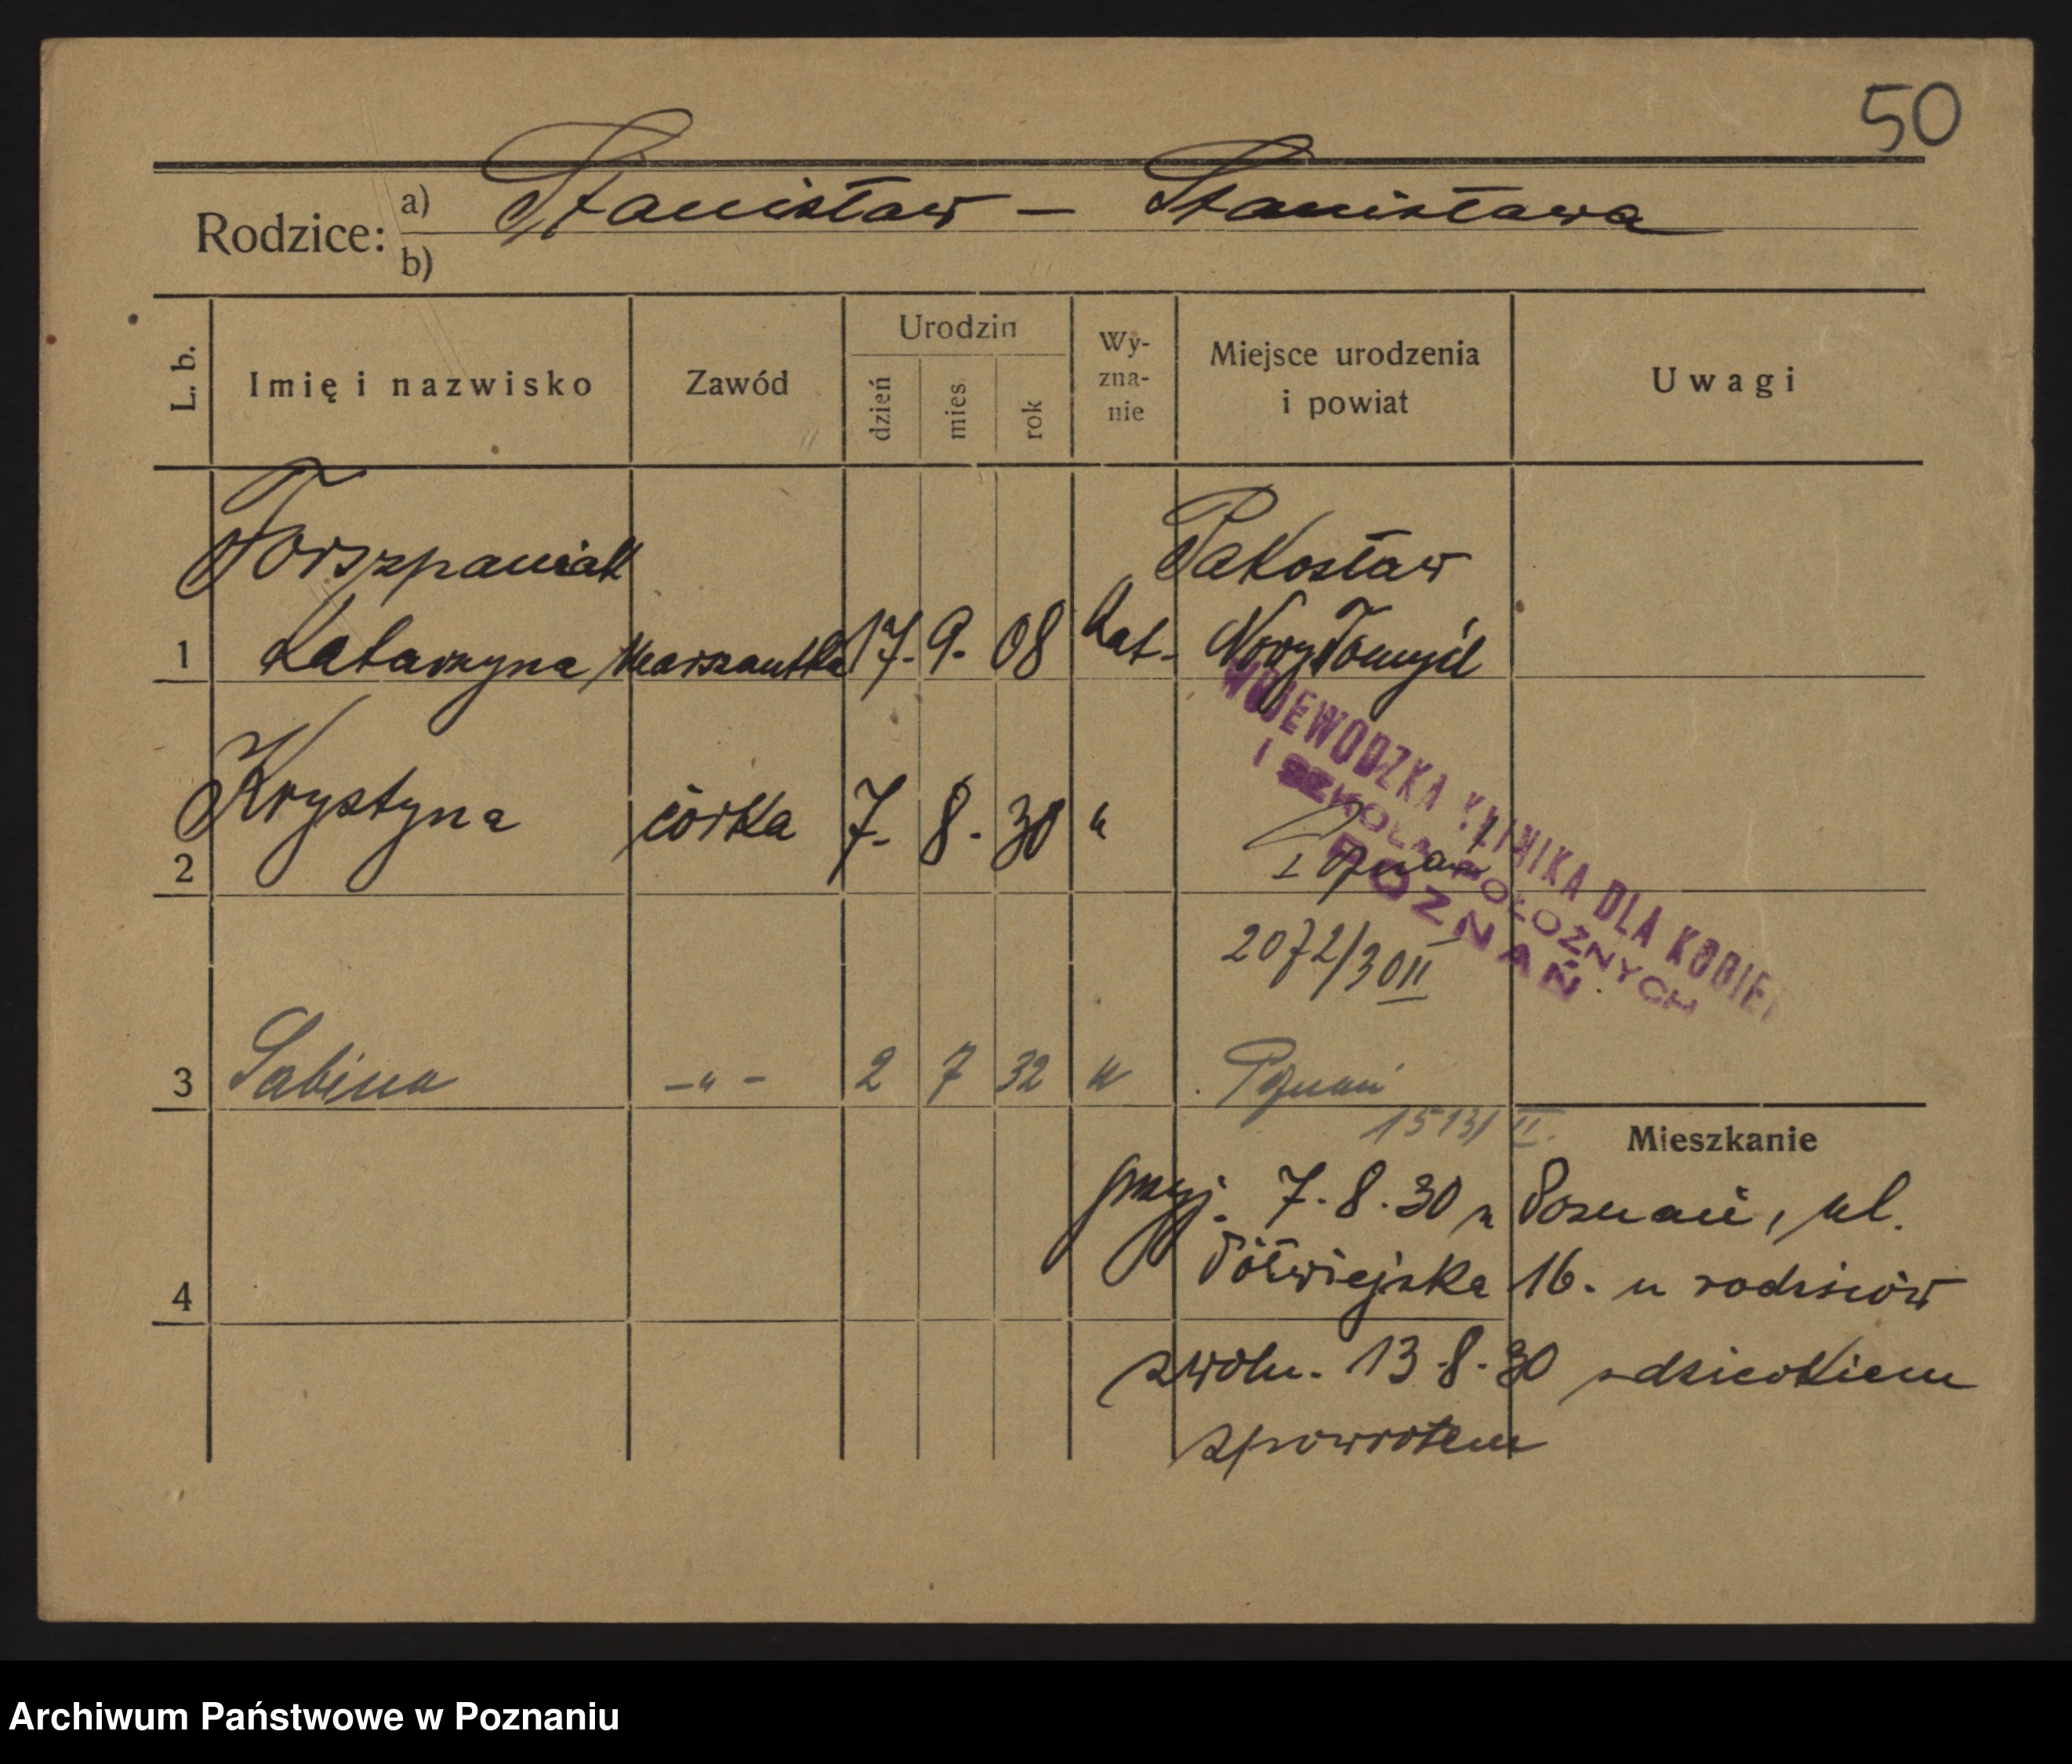 50
Rodzice: a) Stanisław – Stanisława
b)
L. b. Imię i nazwisko Zawód Urodzin dzień mies. rok Wy-zna-nie Miejsce urodzenia i powiat Uwagi
Torszpaniak Pakosław
1 Katarzyna 17. 9. 08 kat. Nowy Tomyśl
WOJEWÓDZKA KLINIKA DLA KOBIET
I SZKOŁA POŁOŻNYCH
POZNAŃ
2 Krystyna córka 7. 8. 30 " Poznań
2072/30 II
3 Sabina – " – 2 7 32 " Poznań
1513/ II.
Mieszkanie
przyj. 7. 8. 30 z Poznań, ul.
Półwiejska 16. u rodziców
4
zwoln. 13. 8. 30 z dzieckiem
zpowrotem
Archiwum Państwowe w Poznaniu